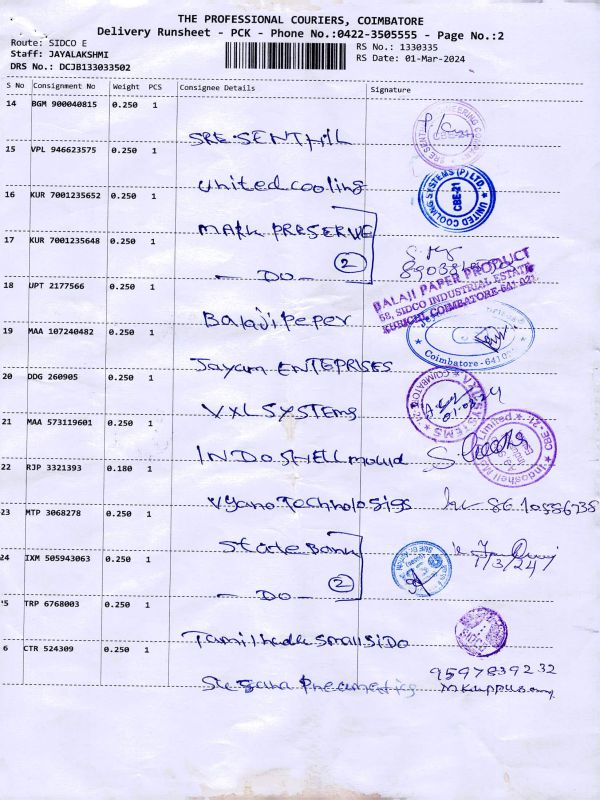 THE PROFESSIONAL COURIERS, COIMBATORE
Delivery Runsheet - PCK - Phone No.:0422-3505555 - Page No.:2
Route: SIDCO E
Staff: JAYALAKSHMI
DRS No.: DCJB133033502
RS No.: 1330335
RS Date: 01-Mar-2024
S No Consignment No Weight PCS Consignee Details Signature
14 BGM 900040815 0.250 1
SRE SENTHIL
15 VPL 946623575 0.250 1
United cooling
UNITED COOLING SYSTEMS (P) LTD.,
CBE-21
16 KUR 7001235652 0.250 1
MARK PRESERVE
17 KUR 7001235648 0.250 1
- DO -
2
18 UPT 2177566 0.250 1
BALAJI PAPER PRODUCT
58, SIDCO INDUSTRIAL ESTATE
KURICHI, COIMBATORE-641 021
Balaji Peper
19 MAA 107240482 0.250 1
Coimbatore-641021
Jayam ENTEPRISES
20 DDG 260905 0.250 1
VXL SYSTEMS
21 MAA 573119601 0.250 1
INDO SHELL mould
22 RJP 3321393 0.180 1
Vyano Technologies
23 MTP 3068278 0.250 1
State Bank
24 IXM 505943063 0.250 1
1/3/24
- DO -
2
25 TRP 6768003 0.250 1
Tamilnadu Small SiDo
6 CTR 524309 0.250 1
9597839232
M Kuppusamy
Pneumatics